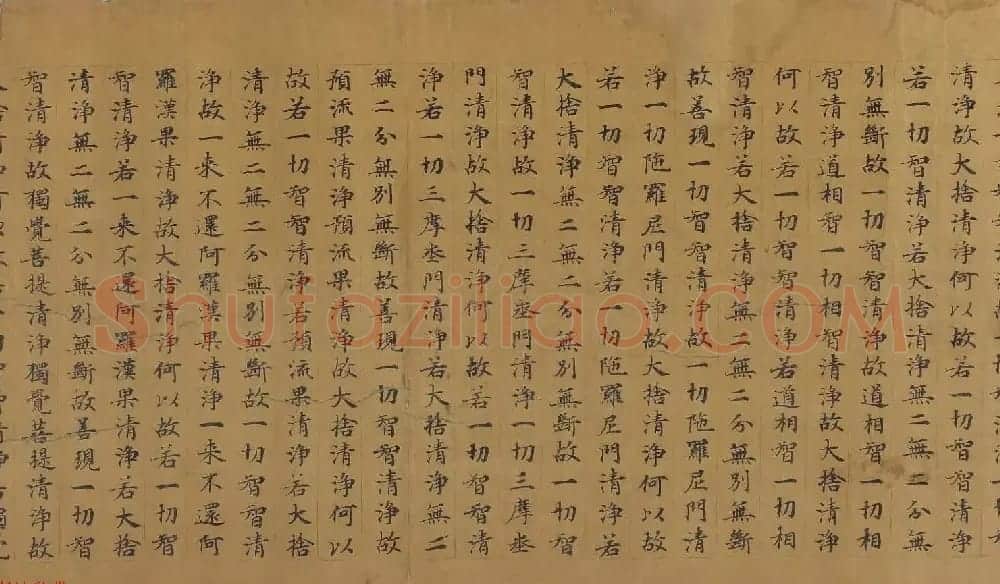 清淨故大捨清淨何以故若一切智智清淨
若一切智清淨若大捨清淨無二無二分無
別無斷故一切智智清淨故道相智一切相
智清淨道相智一切相智清淨故大捨清淨
何以故若一切智智清淨若道相智一切相
智清淨若大捨清淨無二無二分無別無斷
故善現一切智智清淨故一切陀羅尼門清
淨一切陀羅尼門清淨故大捨清淨何以故
若一切智智清淨若一切陀羅尼門清淨若
大捨清淨無二無二分無別無斷故一切智
智清淨故一切三摩地門清淨一切三摩地
門清淨故大捨清淨何以故若一切智智清
淨若一切三摩地門清淨若大捨清淨無二
無二分無別無斷故善現一切智智清淨故
預流果清淨預流果清淨故大捨清淨何以
故若一切智智清淨若預流果清淨若大捨
清淨無二無二分無別無斷故一切智智清
淨故一來不還阿羅漢果清淨一來不還阿
羅漢果清淨故大捨清淨何以故若一切智
智清淨若一來不還阿羅漢果清淨若大捨
清淨無二無二分無別無斷故善現一切智
智清淨故獨覺菩提清淨獨覺菩提清淨故
Shufaziliao.COM